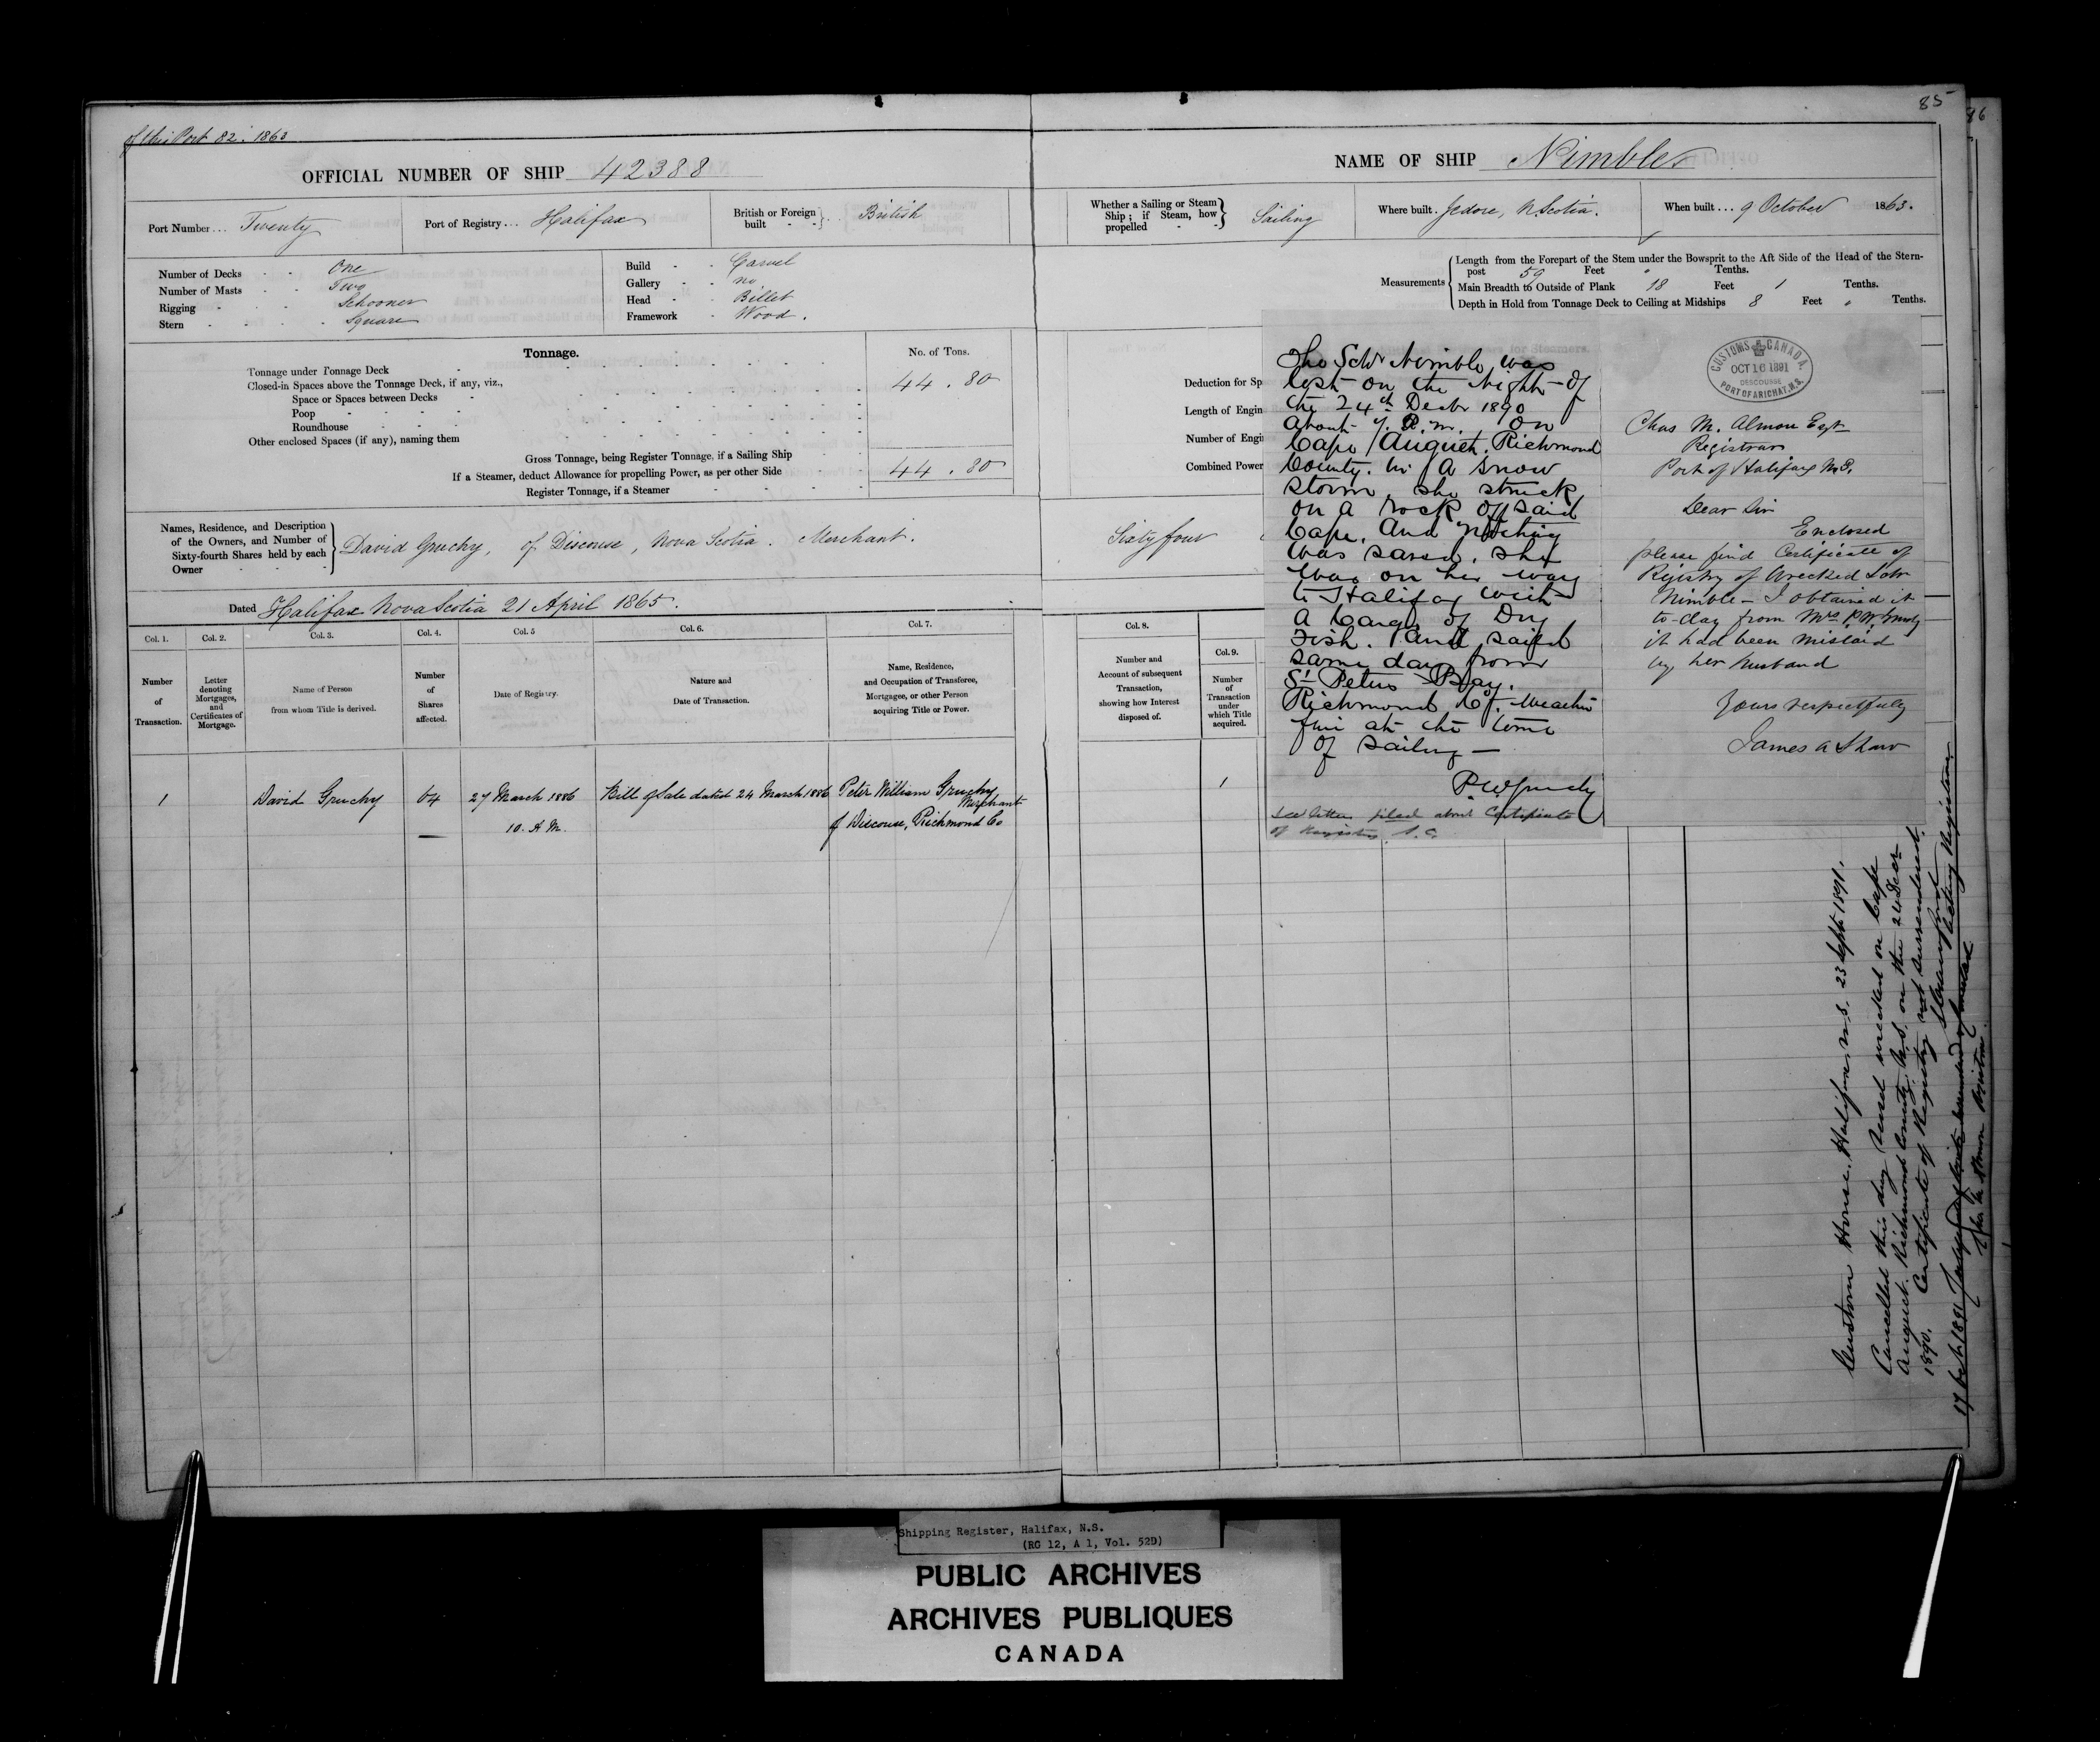 85
86
of this Port 82. 1863
OFFICIAL NUMBER OF SHIP 42388
NAME OF SHIP Nimble
Port Number ... Twenty
Port of Registry ... Halifax
British or Foreign built - - } .. British
Whether a Sailing or Steam Ship; if Steam, how propelled - - } Sailing
Where built . Jedore, N Scotia.
When built ... 9 October 1863.
Number of Decks - - One
Number of Masts - - Two
Rigging - - - Schooner
Stern - - - - Square
Build - - Carvel
Gallery - - no
Head - - Billet
Framework - Wood.
Measurements
Length from the Forepart of the Stem under the Bowsprit to the Aft Side of the Head of the Stern-
post 59 Feet " Tenths.
Main Breadth to Outside of Plank 18 Feet 1 Tenths.
Depth in Hold from Tonnage Deck to Ceiling at Midships 8 Feet " Tenths.
Tonnage.
No. of Tons.
Tonnage under Tonnage Deck
44.80
Closed-in Spaces above the Tonnage Deck, if any, viz.,
Space or Spaces between Decks
Poop
Roundhouse
Other enclosed Spaces (if any), naming them
Gross Tonnage, being Register Tonnage, if a Sailing Ship
44.80
If a Steamer, deduct Allowance for propelling Power, as per other Side
Register Tonnage, if a Steamer
Deduction for Sp
Length of Engin
Number of Engi
Combined Power
Names, Residence, and Description
of the Owners, and Number of
Sixty-fourth Shares held by each
Owner
David Gruchy, of Discouse, Nova Scotia. Merchant.
Sixty four
Dated Halifax Nova Scotia 21 April 1865.
Col. 1.
Col. 2.
Col. 3.
Col. 4.
Col. 5
Col. 6.
Col. 7.
Col. 8.
Col. 9.
Number of Transaction.
Letter denoting Mortgages, and Certificates of Mortgage.
Name of Person from whom Title is derived.
Number of Shares affected.
Date of Registry.
Nature and Date of Transaction.
Name, Residence, and Occupation of Transferee, Mortgagee, or other Person acquiring Title or Power.
Number and Account of subsequent Transaction, showing how Interest disposed of.
Number of Transaction under which Title acquired.
1
David Gruchy
64
27 March 1886
10. A.M.
Bill of Sale dated 24 March 1886
Peter William Gruchy
Merchant
of Discouse, Richmond Co
1
The Schr Nimble was
lost on the Night of
the 24th Decbr 1890
about 7. P.m. on
Cape August. Richmond
County. in a Snow
Storm, she struck
on a rock off said
Cape. And Nothing
was saved, she
was on her way
to Halifax with
a Cargo of Dry
Fish. and sailed
same day from
St Peters Bay.
Richmond Co. Weather
fine at the time
of sailing —
P.W. Gruchy
See letter filed about Certificate
of Registry
CUSTOMS CANADA
OCT 10 1891
DESCOUSSE
PORT OF ARICHAT, N.S.
Chas M. Almon Esqr
Registrar
Port of Halifax N.S.
Dear Sir
Enclosed
please find Certificate of
Registry of Wrecked Schr
Nimble — I obtained it
to-day from Mrs P.W. Gruchy
it had been mislaid
by her husband
Yours respectfully
James A Shaw
Custom House. Halifax, N.S. 23 Sept 1891.
Cancelled this day Vessel wrecked on Cape
August. Richmond County, N.S. on the 24 Decr
1890. Certificate of Registry not surrendered.
Acting Registrar
Shipping Register, Halifax, N.S.
(RG 12, A 1, Vol. 52D)
PUBLIC ARCHIVES
ARCHIVES PUBLIQUES
CANADA